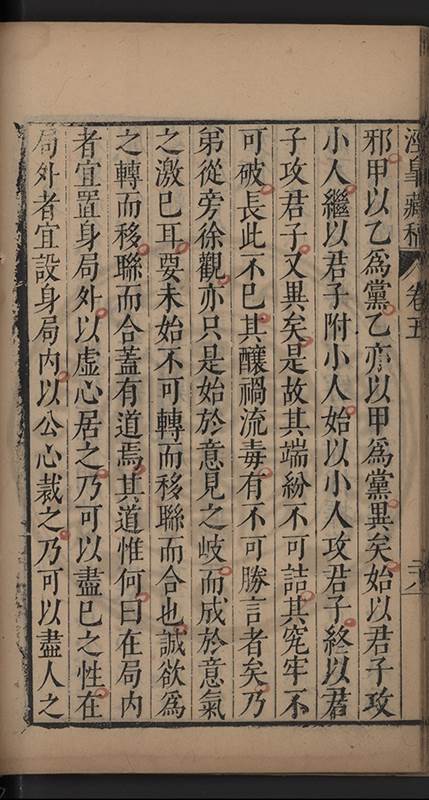 涇臯藏稿 卷五 二八
邪甲以乙爲黨乙亦以甲爲黨異矣始以君子攻
小人繼以君子附小人始以小人攻君子終以君
子攻君子又異矣是故其端紛不可詰其究牢不
可破長此不已其釀禍流毒有不可勝言者矣乃
弟從旁徐觀亦只是始於意見之岐而成於意氣
之激已耳要未始不可轉而移聯而合也誠欲爲
之轉而移聯而合蓋有道焉其道惟何曰在局内
者宜置身局外以虛心居之乃可以盡已之性在
局外者宜設身局内以公心裁之乃可以盡人之